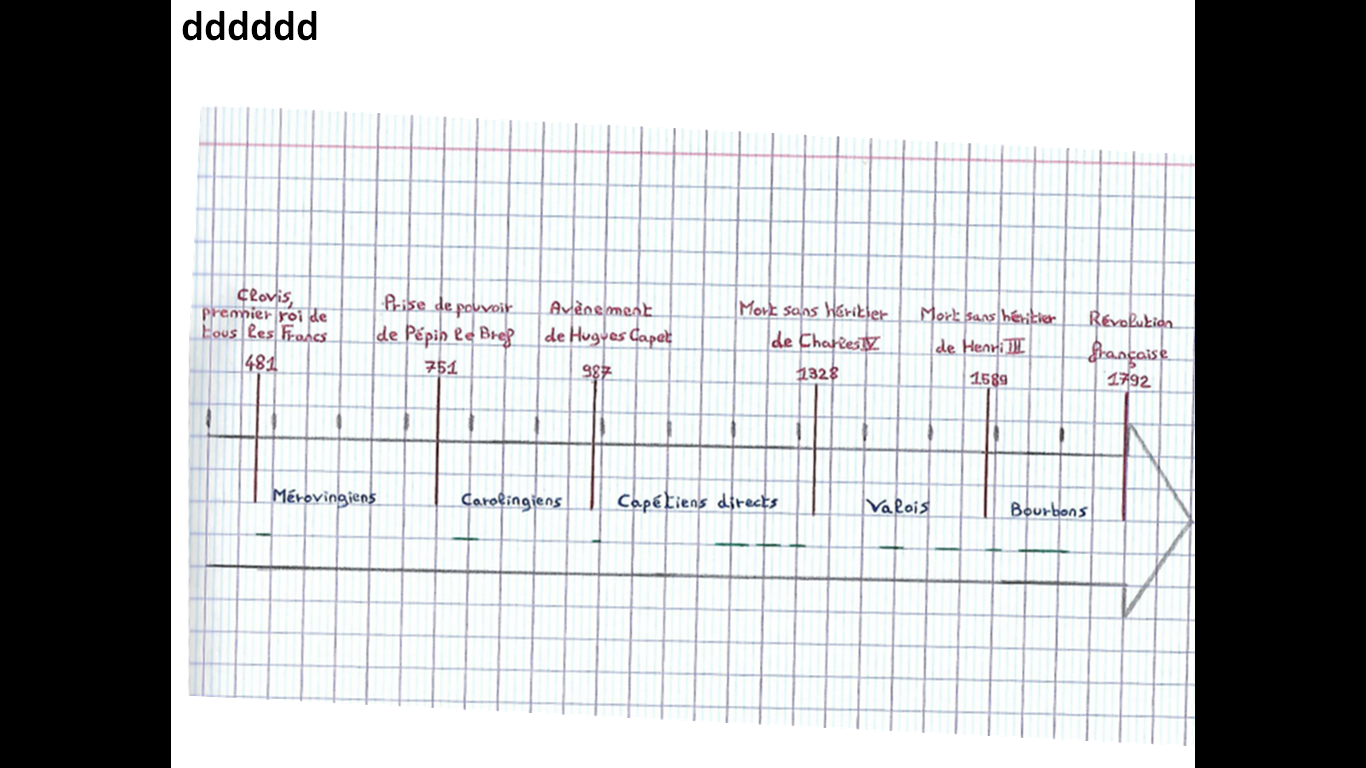 dddddd
Clovis,
premier roi de
tous les Francs
481
Prise de pouvoir
de Pépin le Bref
751
Avènement
de Hugues Capet
987
Mort sans héritier
de Charles IV
1328
Mort sans héritier
de Henri III
1589
Révolution
française
1792
Mérovingiens
Carolingiens
Capétiens directs
Valois
Bourbons